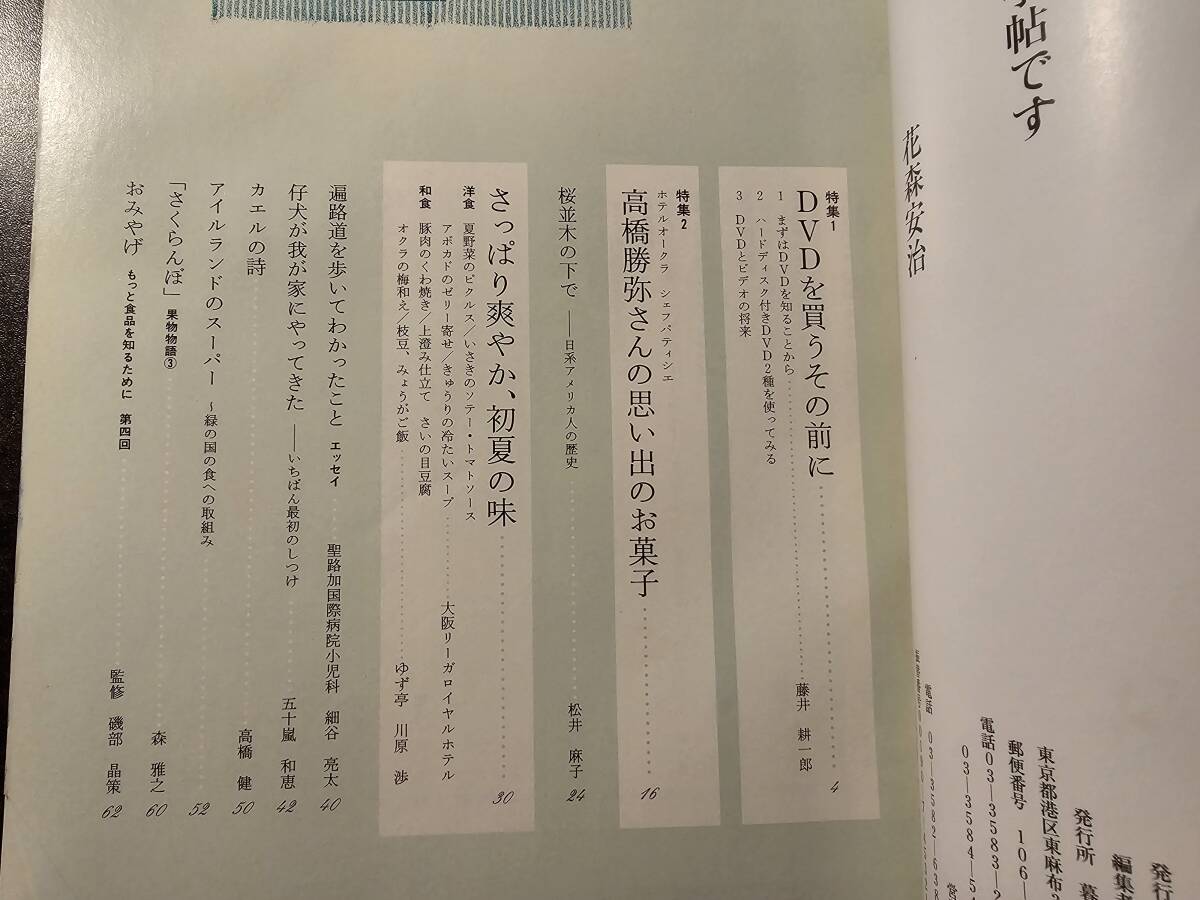 帖です
花森安治
発行
編集
発行所 暮
東京都港区東麻布
郵便番号 106
電話03―3583―
03―3584―5
電話 03―3582―638
特集1
DVDを買うその前に
1 まずはDVDを知ることから
2 ハードディスク付きDVD2種を使ってみる
3 DVDとビデオの将来
藤井 耕一郎
4
特集2
ホテルオークラ シェフパティシエ
高橋勝弥さんの思い出のお菓子
16
桜並木の下で ――日系アメリカ人の歴史
松井 麻子
24
さっぱり爽やか、初夏の味
30
洋食 夏野菜のピクルス/いさきのソテー・トマトソース
アボカドのゼリー寄せ/きゅうりの冷たいスープ 大阪リーガロイヤルホテル
和食 豚肉のくわ焼き/上澄み仕立て さいの目豆腐
オクラの梅和え/枝豆、みょうがご飯 ゆず亭 川原 渉
遍路道を歩いてわかったこと エッセイ 聖路加国際病院小児科 細谷 亮太 40
仔犬が我が家にやってきた ――いちばん最初のしつけ 五十嵐 和恵 42
カエルの詩 高橋 健 50
アイルランドのスーパー ~緑の国の食への取組み 52
「さくらんぼ」 果物物語③ 森 雅之 60
おみやげ もっと食品を知るために 第四回 監修 磯部 晶策 62